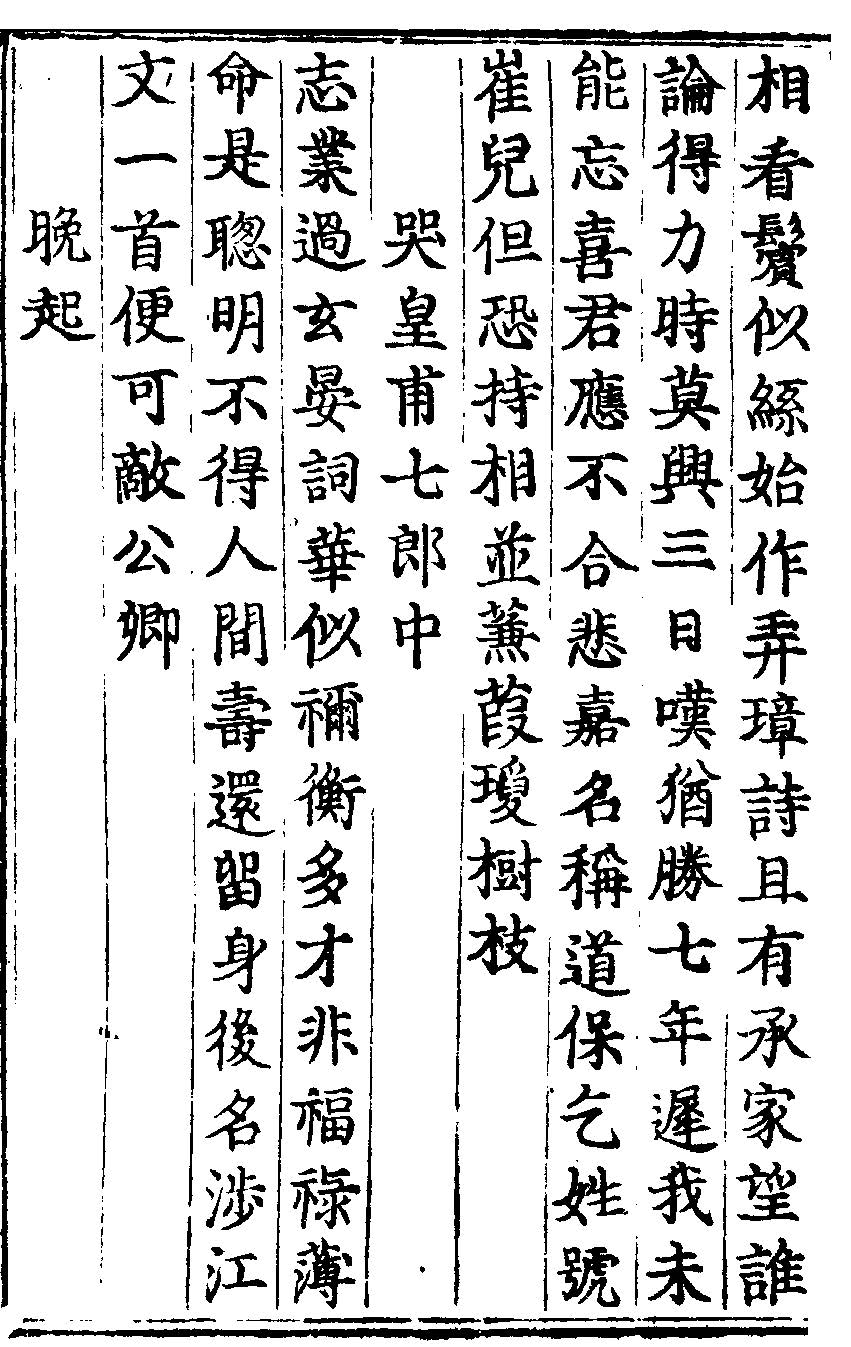 相看鬢似絲始作弄璋詩且有承家望誰
論得力時莫興三日嘆猶勝七年遲我未
能忘喜君應不合悲嘉名稱道保乞姓號
崔兒但恐持相並蒹葭瓊樹枝
哭皇甫七郎中
志業過玄晏詞華似禰衡多才非福祿薄
命是聰明不得人間壽還留身後名涉江
文一首便可敵公卿
晚起